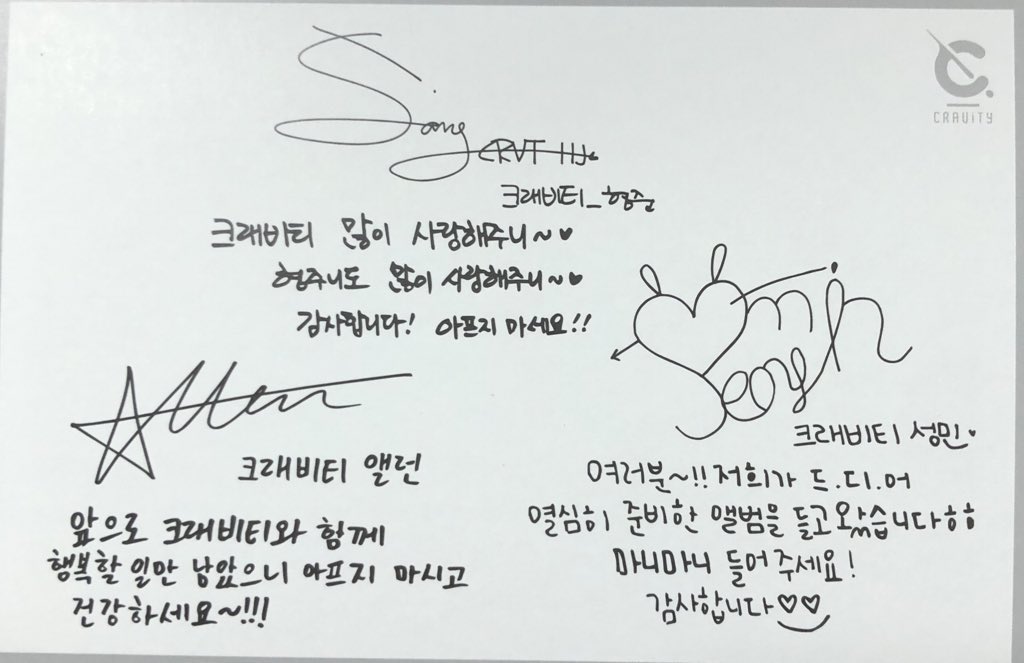 CRAVITY
Song
CRVT HJ
크래비티_형준
크래비티 많이 사랑해주니~♥
형주니도 많이 사랑해주니~♥
감사합니다! 아프지 마세요!!
Allen
크래비티 앨런
앞으로 크래비티와 함께
행복할 일만 남았으니 아프지 마시고
건강하세요~!!!
Seongmin
크래비티 성민♥
여러분~!! 저희가 드.디.어
열심히 준비한 앨범을 들고 왔습니다ㅎㅎ
마니마니 들어주세요!
감사합니다♡♡